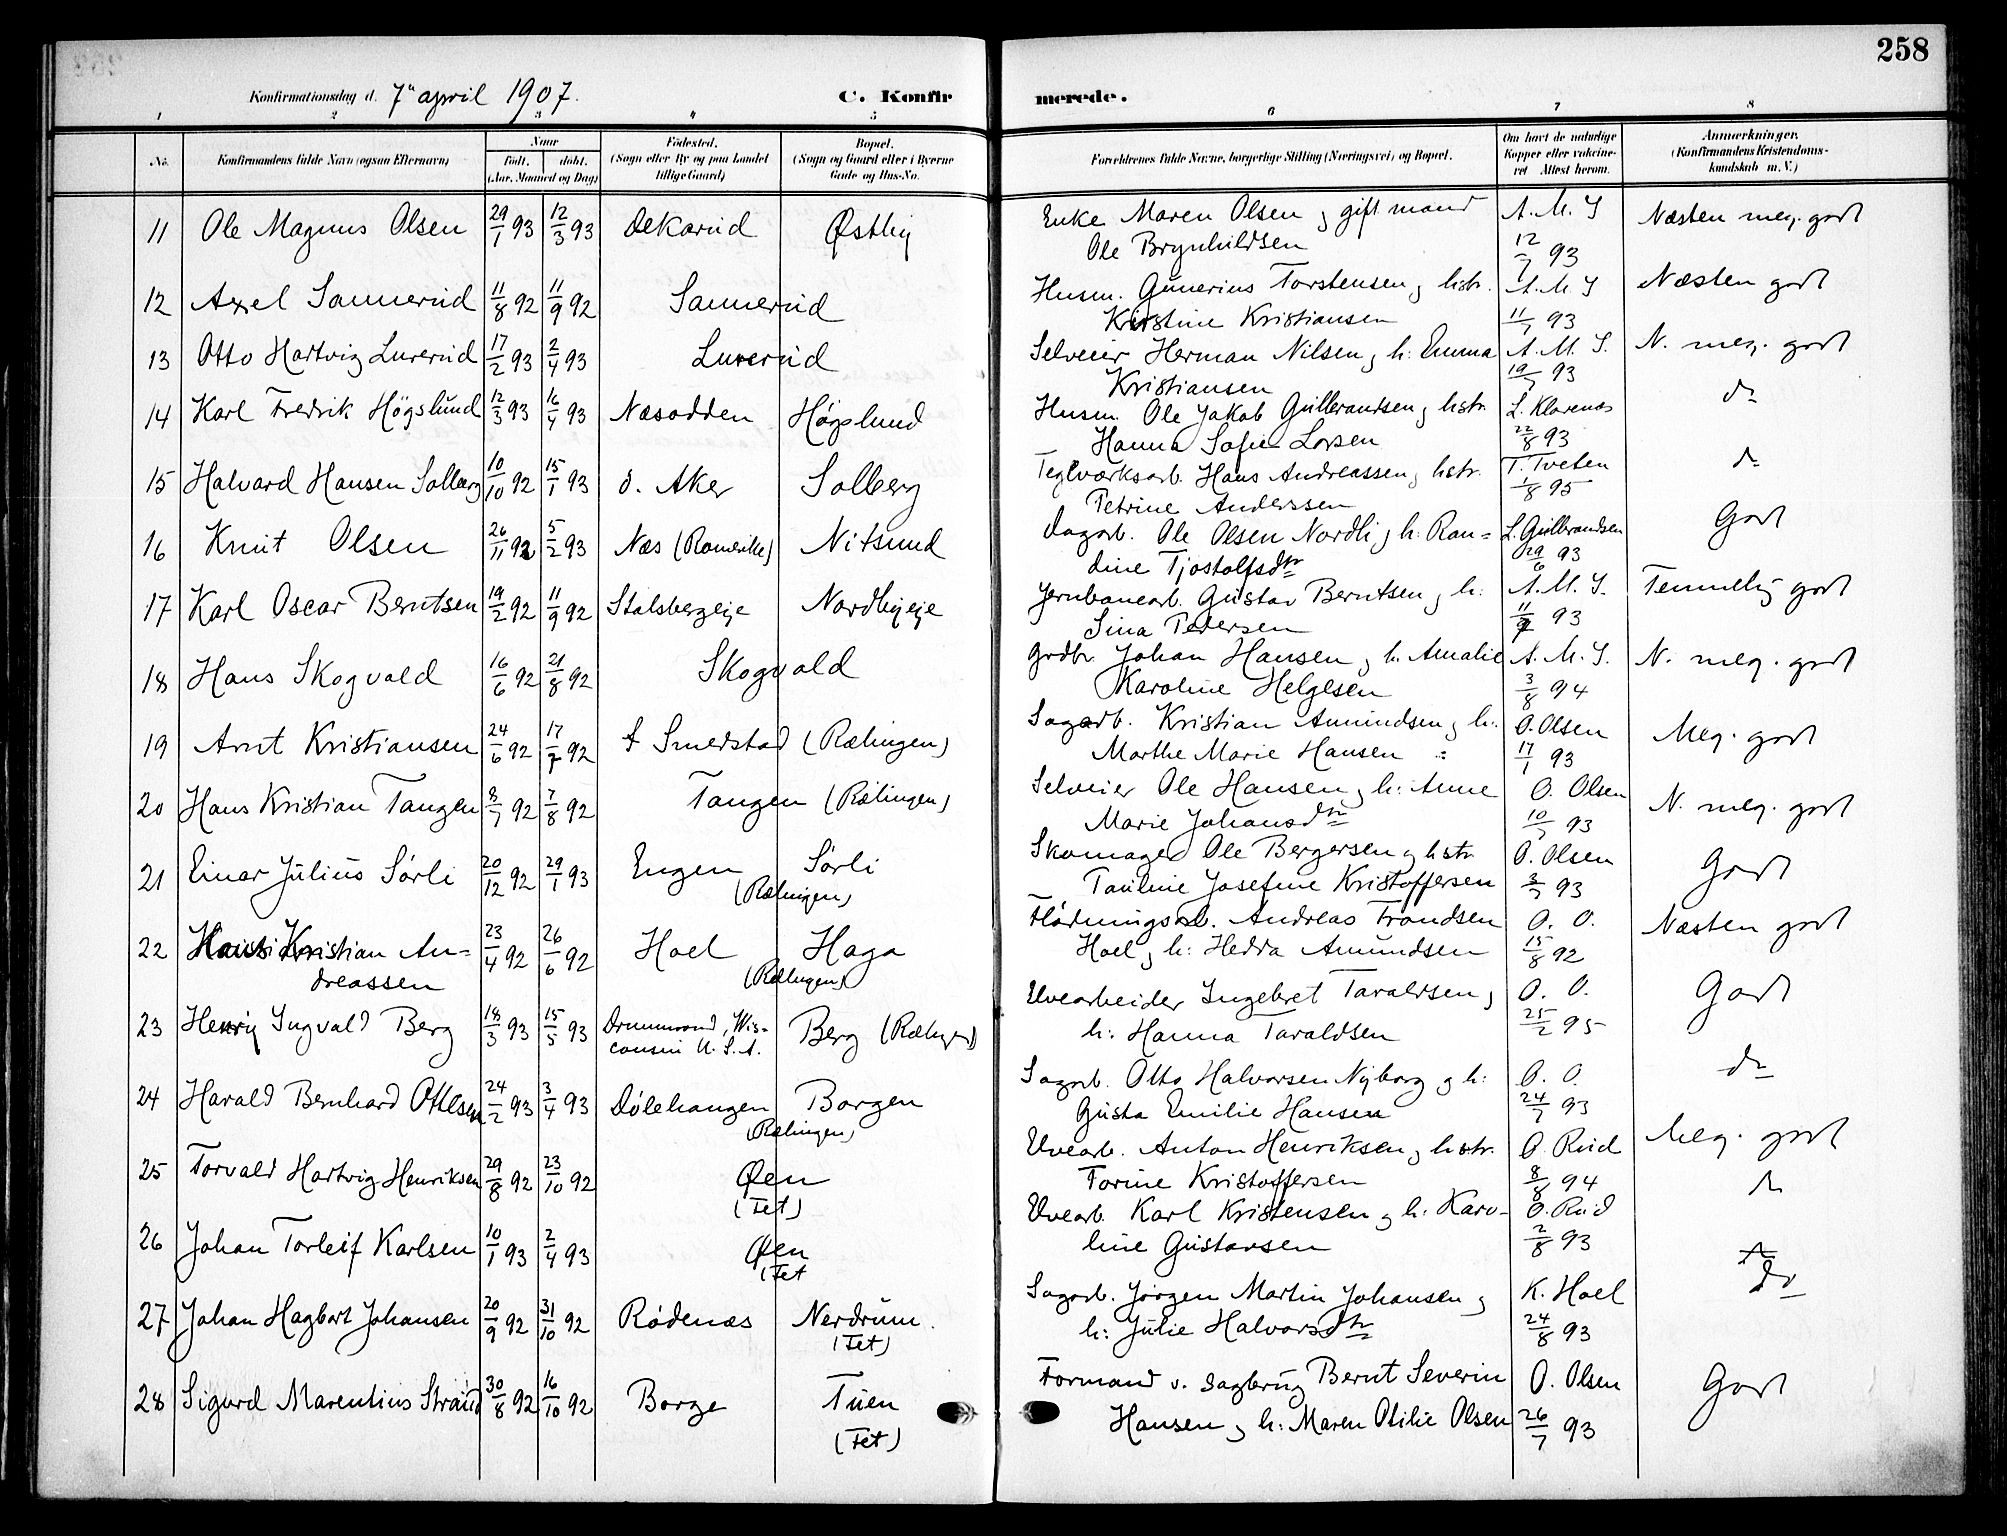 258
Konfirmationsdag d. 7de april 1907.
C. Konfir
merede.
1 2 3 4 5 6 7 8
No.
Konfirmandens fulde Navn (ogsaa Efternavn)
Naar
født. døbt.
(Aar, Maaned og Dag)
Fødested.
(Sogn eller By og paa Landet
tillige Gaard)
Bopæl.
(Sogn og Gaard eller i Byerne
Gade og Hus-No.
Forældrenes fulde Navne, borgerlige Stilling (Næringsvei) og Bopæl.
Om havt de naturlige
Kopper eller vakcine-
ret Attest herom.
Anmærkninger.
(Konfirmandens Kristendoms-
kundskab m. V.)
11 Ole Magnus Olsen 29/1 93 12/3 93 Dekarud Østby Enke Maren Olsen g gift mand A. M. S Næsten meg. godt
Ole Brynhildsen 12/7 93
12 Axel Sannerud 11/8 92 11/9 92 Sannerud Husm. Gunerius Torstensen g hstr. A. M. S Næsten godt
Kirstine Kristiansen 11/7 93
13 Otto Hartvig Lurerud 17/2 93 2/4 93 Lurerud Selveier Herman Nilsen g h: Emma A. M. S. N. meg. godt
Kristiansen 19/7 93
14 Karl Fredrik Høgslund 12/3 93 16/4 93 Næsodden Høgslund Husm. Ole Jakob Gulbrandsen g hstr. L. Klarenæs do
Hanna Sofie Larsen 22/8 93
15 Halvard Hansen Solberg 10/10 92 15/1 93 Ø. Aker Solberg Teglværksarb. Hans Andreassen g hstr. T. Tveten do
Petrine Anderssen 1/8 95
16 Knut Olsen 26/11 92 5/2 93 Næs (Romerike) Nitsund Dagarb. Ole Olsen Nordli g h: Ran= L. Gulbrandsen Godt
dine Tjostolfsdtr 29/6 93
17 Karl Oscar Berntsen 19/2 92 11/9 92 Stalsbergeje Nordbyeje Jernbanearb. Gustav Berntsen g h: A. M. S. Temmelig godt
Sina Pedersen 11/7 93
18 Hans Skogvold 16/6 92 21/8 92 Skogvold Grdbr. Johan Hansen g h. Amalie A. M. S. N. meg. godt
Karoline Helgesen 3/8 94
19 Arnt Kristiansen 24/6 92 17/7 92 Smedstad (Rælingen) Sagarb. Kristian Amundsen g h: O. Olsen Meg. godt
Marthe Marie Hansen 17/1 93
20 Hans Kristian Tangen 8/7 92 7/8 92 Tangen (Rælingen) Selveier Ole Hansen g h: Anne O. Olsen N. meg. godt
Marie Johansdtr 10/7 93
21 Einar Julius Sørli 20/12 92 29/1 93 Engen Sørli Skomager Ole Bergersen g hstr O. Olsen Godt
(Rælingen) Pauline Josefine Kristoffersen 3/7 93
22 Kristian An= 23/4 92 26/6 92 Hoel Haga Flødningsarb. Andreas Trondsen O. O. Næsten godt
dreassen (Rælingen) Hoel g h: Hedda Amundsen 15/8 92
23 Henry Ingvald Berg 18/3 93 15/5 93 Drummond, Wis= Berg (Rælingen) Uvearbeider Ingebret Taraldsen g O. O. Godt
consin U. S. A. h: Hanna Taraldsen 25/2 95
24 Harald Bernhard Ottesen 24/2 93 3/4 93 Dølehaugen Borgen Sagarb. Otto Halvorsen Nyborg g h: O. O. do
(Rælingen) Gusta Emilie Hansen 24/7 93
25 Torvald Hartvig Henriksen 29/8 92 23/10 92 Øen Uvearb. Anton Henriksen g hstr. O. Ruid Meg. godt
(Fet) Torine Kristoffersen 8/8 94
26 Johan Torleif Karlsen 10/1 93 2/4 93 Øen Uvearb. Karl Kristensen g h: Karo- O. Ruid do
(Fet line Gustavsen 2/8 93
27 Johan Hagbart Johansen 20/9 92 31/10 92 Rødenæs Nerdrum. Sagarb. Jørgen Martin Johansen g K. Hoel do
(Fet) h: Julie Halvorsdtr 24/8 93
28 Sigurd Marentius Strand 30/8 92 16/10 92 Borge Tuen Formand v. Sagbrug Bernt Severin O. Olsen Godt
(Fet) Hansen g h: Maren Otilie Olsen 26/7 93